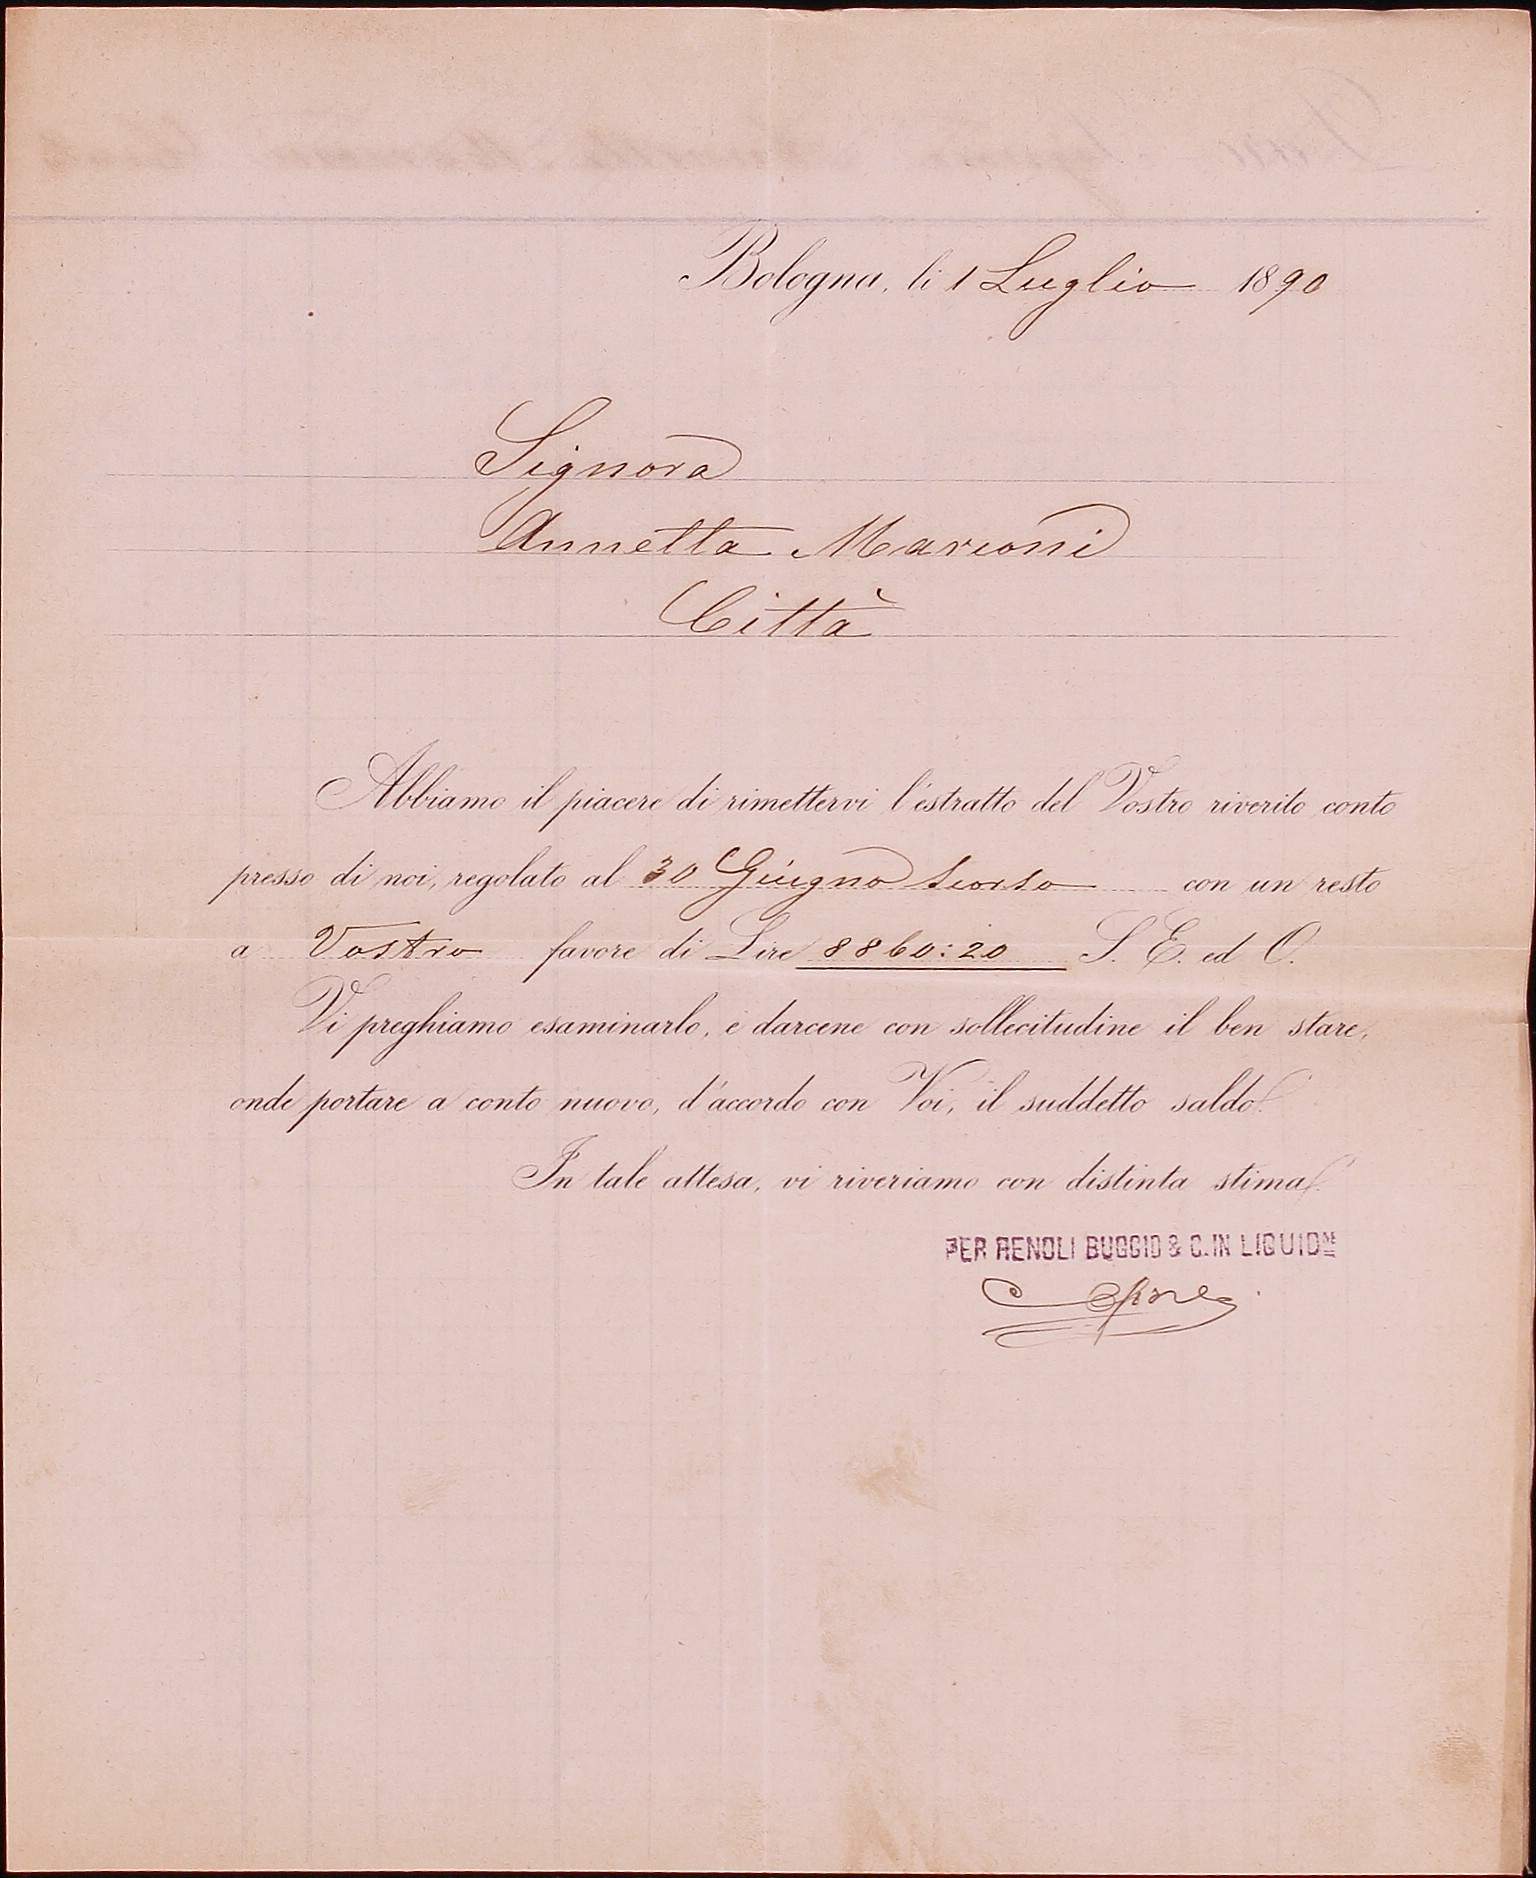 Bologna, li 1 Luglio 1890
Signora
Annetta Marconi
Città
Abbiamo il piacere di rimettervi l'estratto del Vostro riverito conto
presso di noi, regolato al 30 Giugno scorso con un resto
a Vostro favore di Lire 8860:20 S. E. ed O.
Vi preghiamo esaminarlo, e darcene con sollecitudine il ben stare,
onde portare a conto nuovo, d'accordo con Voi, il suddetto saldo.
In tale attesa, vi riveriamo con distinta stima.
PER RENOLI BUGGIO & C. IN LIQUIDNE